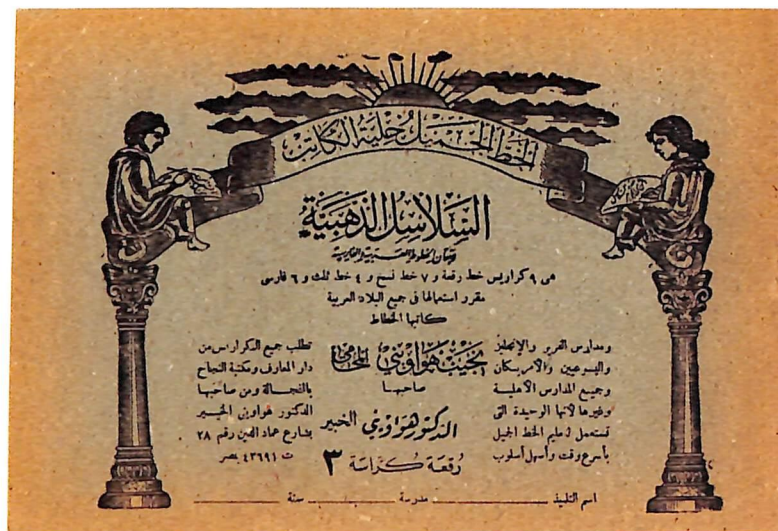 الخط الجميل حلية الكاتب
السلاسل الذهبية
لإتقان الخطوط العربية والفارسية
هى ٩ كراريس خط رقعة و ٧ خط نسخ و ٤ خط ثلث و ٦ فارسى
مقرر استعمالها فى جميع البلاد العربية
كاتبها الخطاط
نجيب هواوينى المحامى
صاحبها
الدكتور هواوينى الخبير
رقعة كراسة ٣
ومدارس الفرير والإنجليز
واليسوعيين والأمريكان
وجميع المدارس الأهلية
وغيرها لأنها الوحيدة التى
تستعمل لتعليم الخط الجميل
بأسرع وقت وأسهل أسلوب
تطلب جميع الكراراس من
دار المعارف ومكتبة النجاح
بالفجالة ومن صاحبها
الدكتور هواوينى الخبير
بشارع عماد الدين رقم ٢٨
ت ٤٣٦٩١ بمصر
اسم التلميذ مدرسة سنة